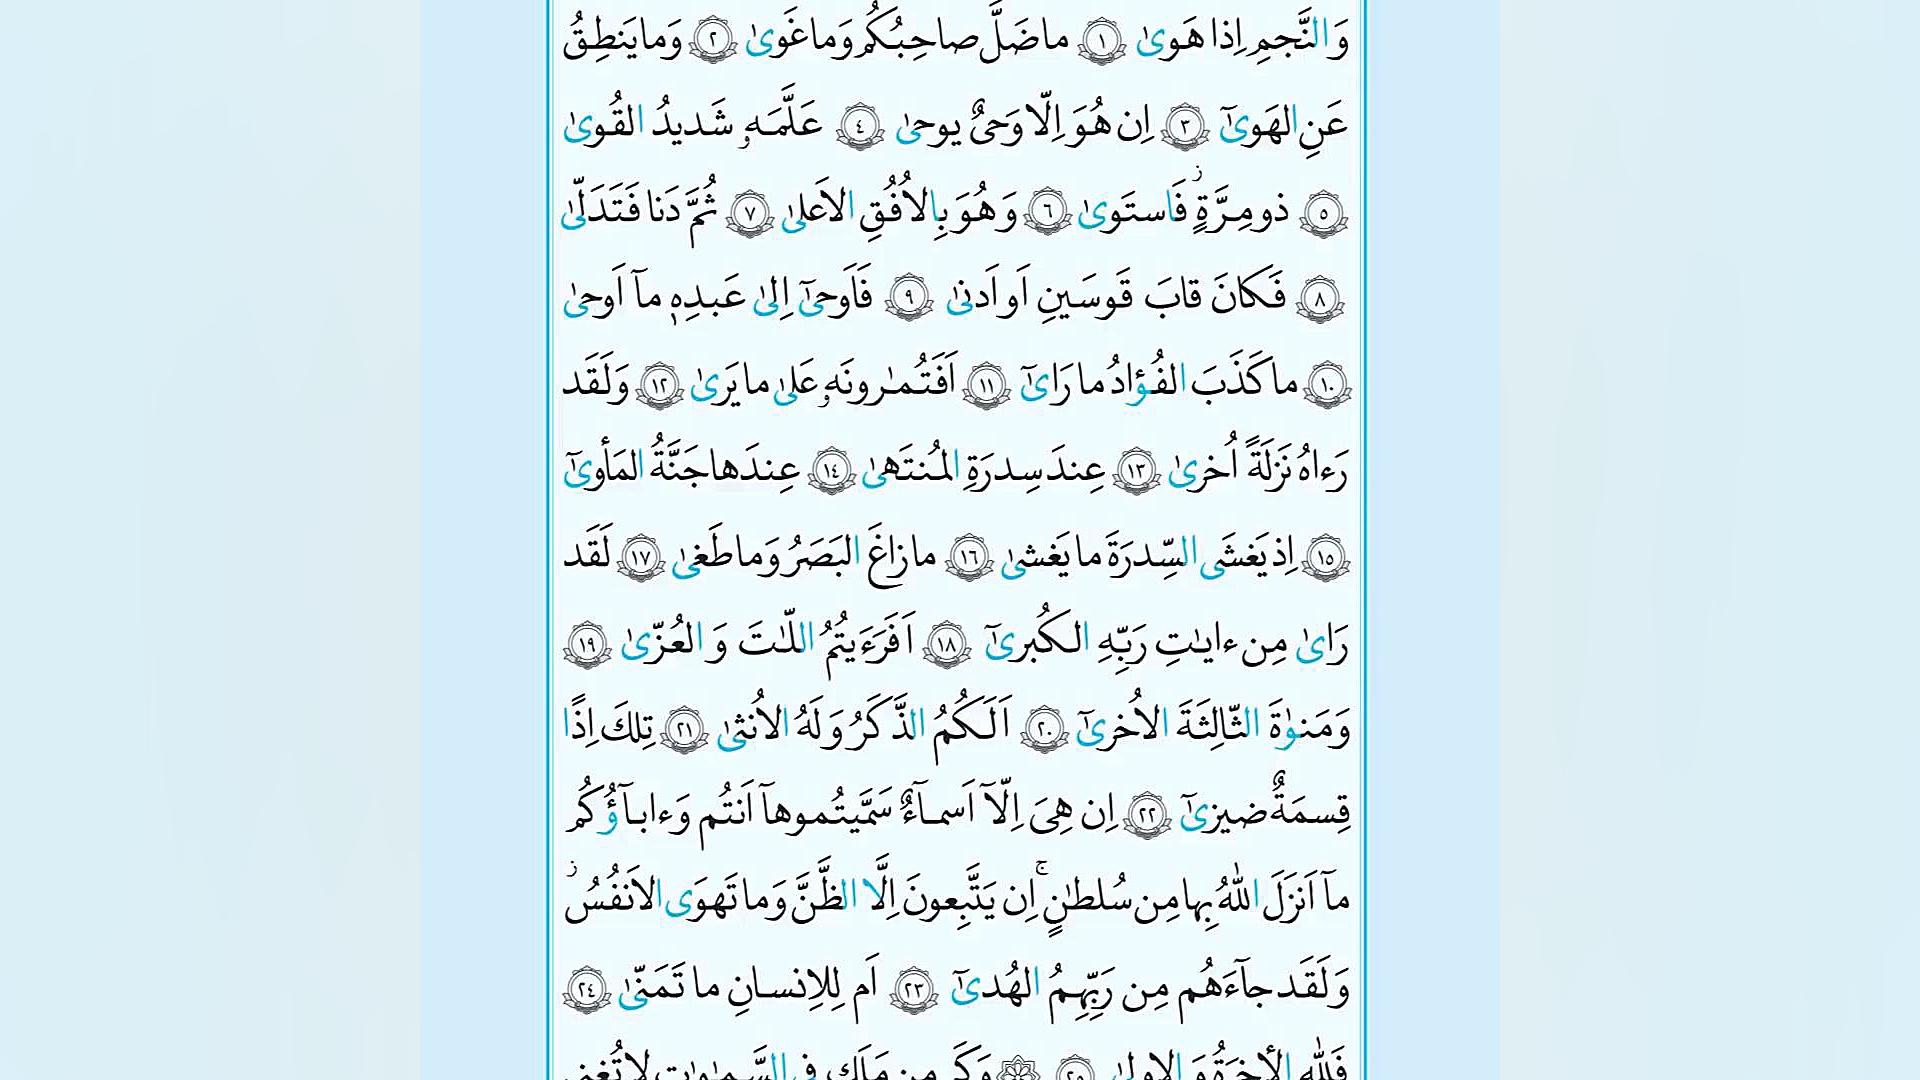 وَالنَّجمِ اِذا هَوىٰ ﴿١﴾ ما ضَلَّ صاحِبُكُم وَما غَوىٰ ﴿٢﴾ وَما يَنطِقُ
عَنِ الهَوىٰٓ ﴿٣﴾ اِن هُوَ اِلّا وَحىٌ يوحىٰ ﴿٤﴾ عَلَّمَهۥ شَديدُ القُوىٰ
﴿٥﴾ ذو مِرَّةٍ ز فَاستَوىٰ ﴿٦﴾ وَهُوَ بِالاُفُقِ الاَعلىٰ ﴿٧﴾ ثُمَّ دَنا فَتَدَلّىٰ
﴿٨﴾ فَكانَ قابَ قَوسَينِ اَو اَدنىٰ ﴿٩﴾ فَاَوحىٰٓ اِلىٰ عَبدِهٖ مآ اَوحىٰ
﴿١٠﴾ ما كَذَبَ الفُؤادُ ما رَاىٰٓ ﴿١١﴾ اَفَتُمٰرونَهۥ عَلىٰ ما يَرىٰ ﴿١٢﴾ وَلَقَد
رَءاهُ نَزلَةً اُخرىٰ ﴿١٣﴾ عِندَ سِدرَةِ المُنتَهىٰ ﴿١٤﴾ عِندَها جَنَّةُ المَأوىٰٓ
﴿١٥﴾ اِذ يَغشَى السِّدرَةَ ما يَغشىٰ ﴿١٦﴾ ما زاغَ البَصَرُ وَما طَغىٰ ﴿١٧﴾ لَقَد
رَاىٰ مِن ءايٰتِ رَبِّهِ الكُبرىٰٓ ﴿١٨﴾ اَفَرَءَيتُمُ اللّٰتَ وَ العُزّىٰ ﴿١٩﴾
وَمَنوٰةَ الثّالِثَةَ الاُخرىٰٓ ﴿٢٠﴾ اَلَكُمُ الذَّكَرُ وَلَهُ الاُنثىٰ ﴿٢١﴾ تِلكَ اِذًا
قِسمَةٌ ضيزىٰٓ ﴿٢٢﴾ اِن هِىَ اِلّآ اَسمآءٌ سَمَّيتُموهآ اَنتُم وَءابآؤُكُم
مآ اَنزَلَ اللّٰهُ بِها مِن سُلطٰنٍ ۚ اِن يَتَّبِعونَ اِلَّا الظَّنَّ وَما تَهوَى الاَنفُسُ ز
وَلَقَد جآءَهُم مِن رَبِّهِمُ الهُدىٰٓ ﴿٢٣﴾ اَم لِلاِنسانِ ما تَمَنّىٰ ﴿٢٤﴾
فَلِلّٰهِ الأخِرَةُ وَ الاولىٰ ﴿٢٥﴾ وَكَم مِن مَلَكٍ فِى السَّمٰوٰتِ لا تُغنى